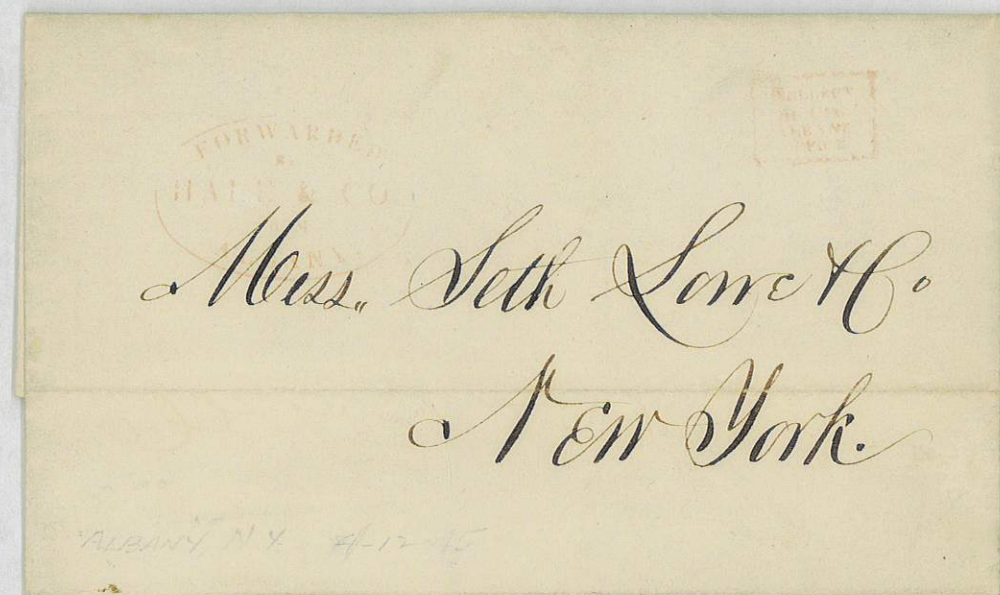 FORWARDED
BY
HALE & CO.
COLLECT
Mess,, Seth Low & Co
New York.
ALBANY N.Y. 4-12-45